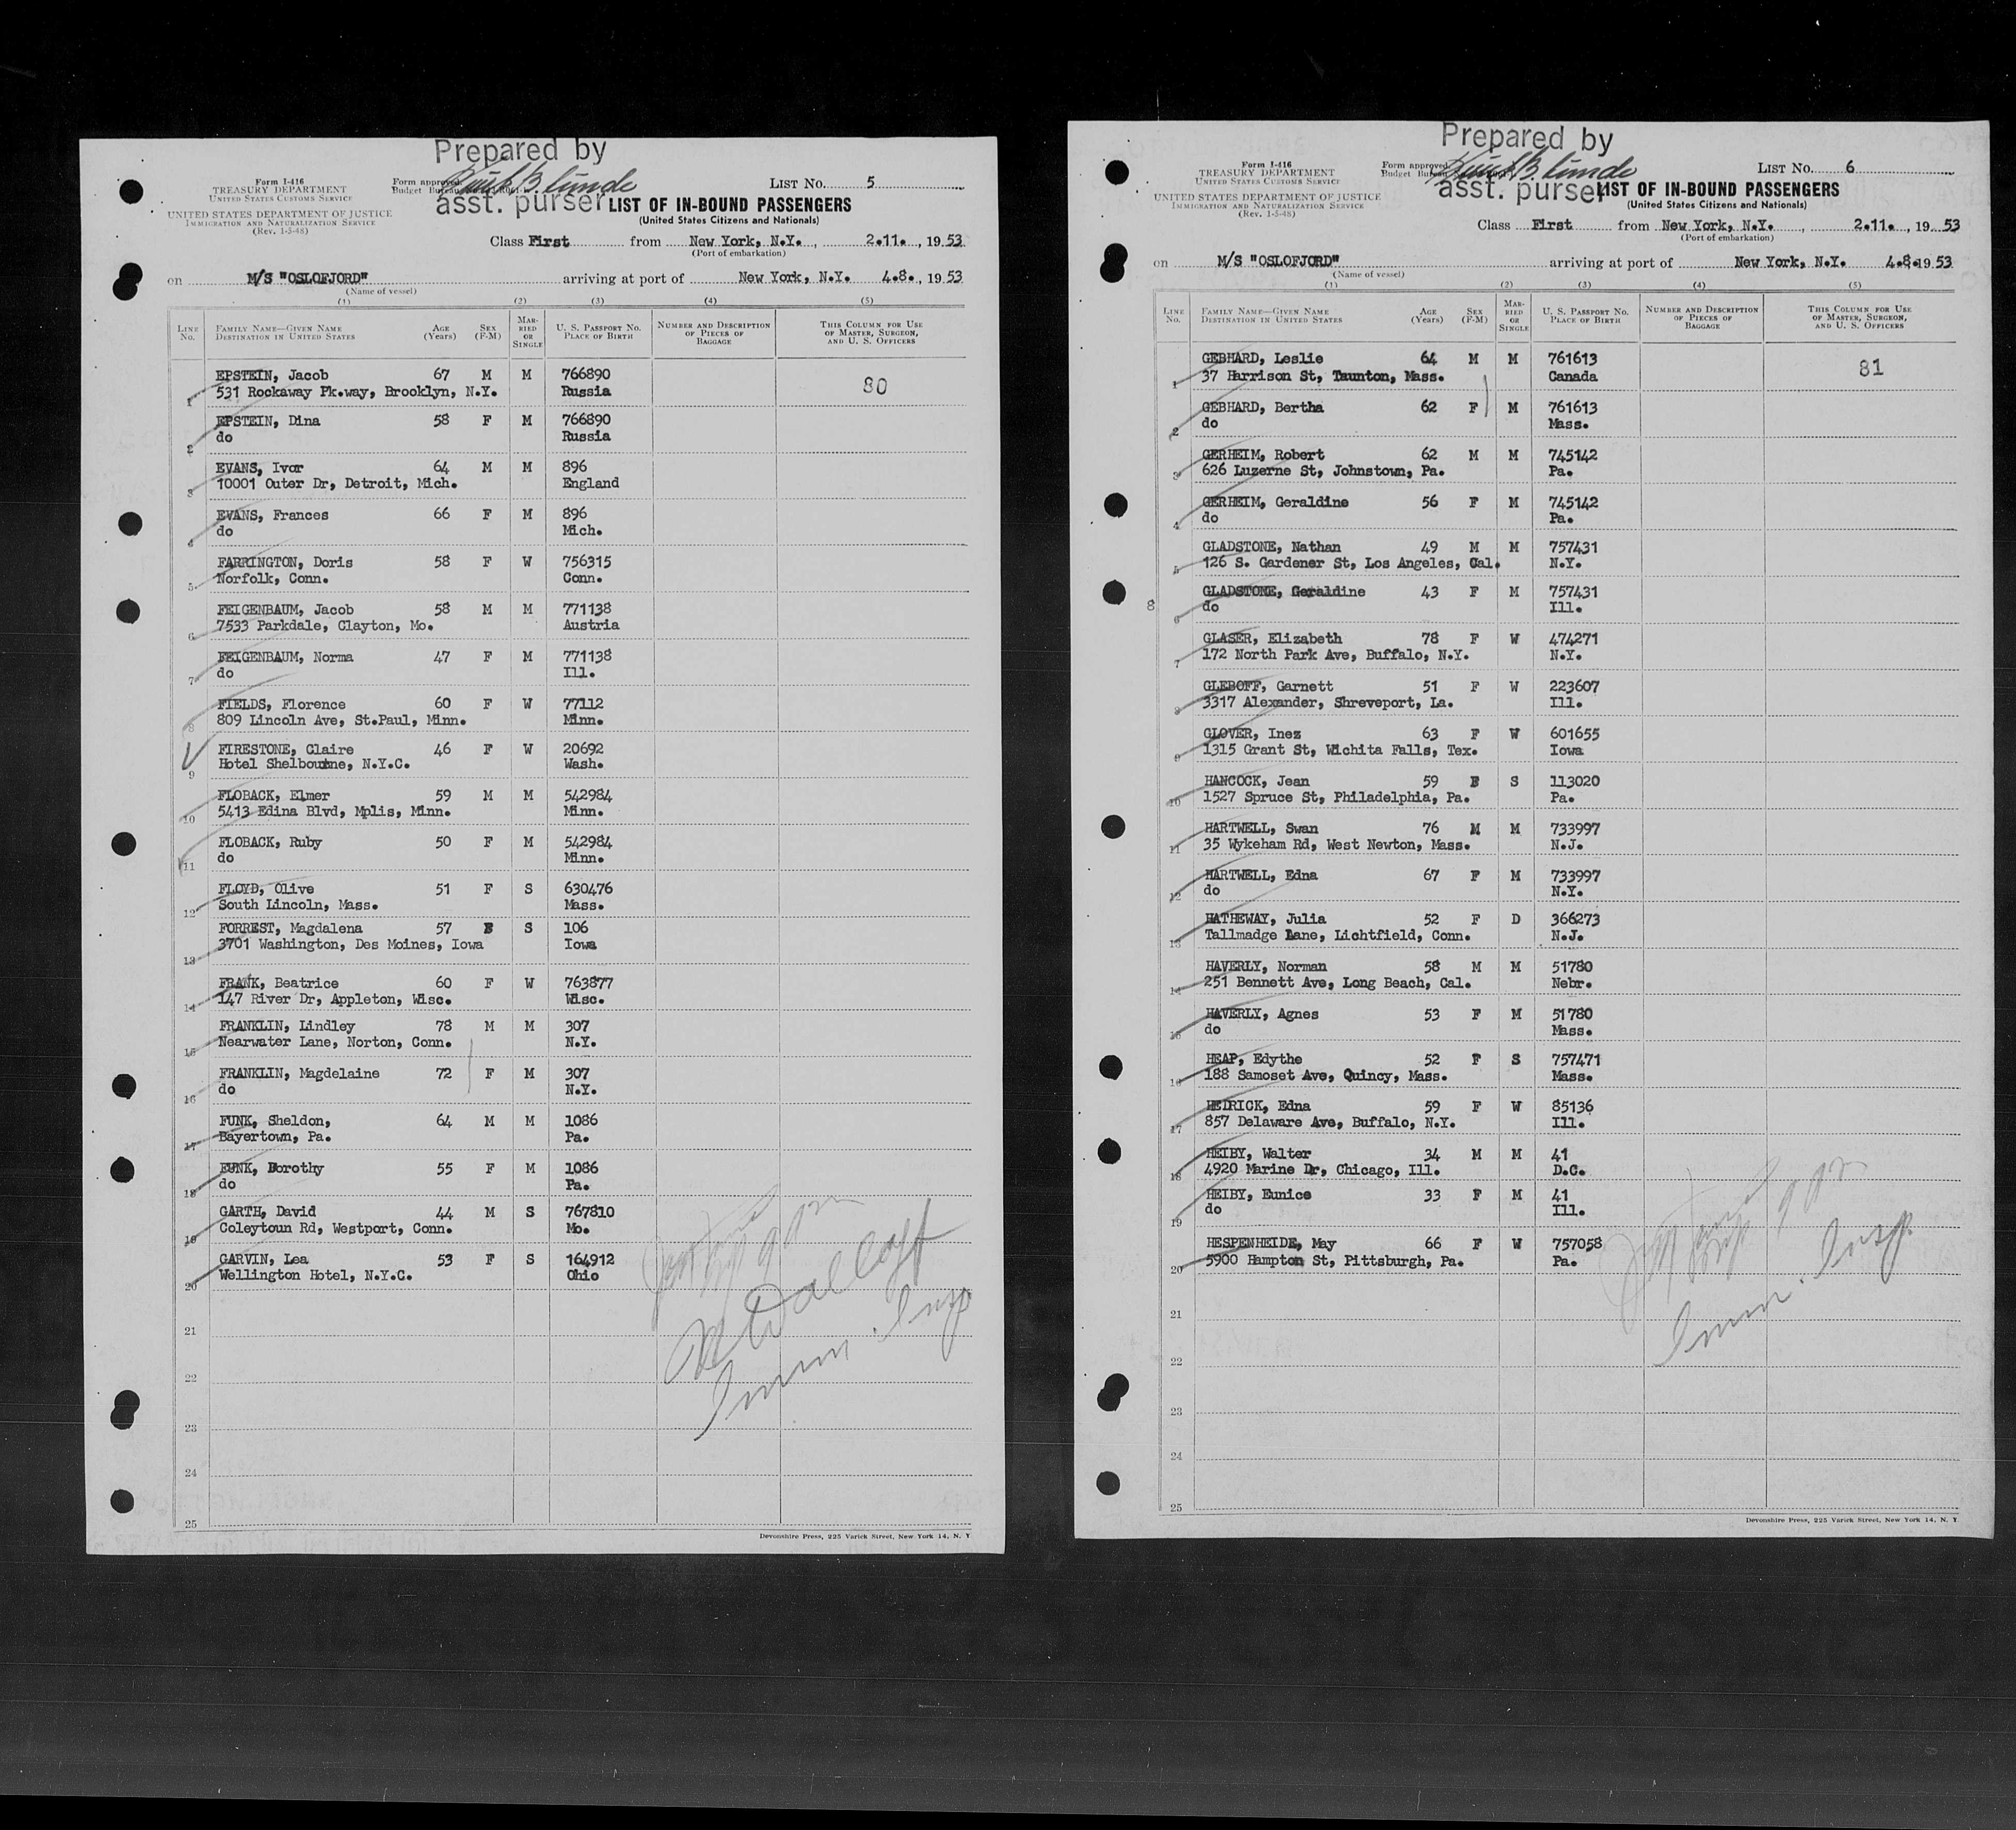 Prepared by
Form I-416
TREASURY DEPARTMENT
UNITED STATES CUSTOMS SERVICE
Form approved
Budget Bureau
asst. purser
LIST NO. 5
UNITED STATES DEPARTMENT OF JUSTICE
IMMIGRATION AND NATURALIZATION SERVICE
(Rev. 1-5-48)
LIST OF IN-BOUND PASSENGERS
(United States Citizens and Nationals)
Class First from New York, N.Y., 2.11., 1953
(Port of embarkation)
on M/S "OSLOFJORD" arriving at port of New York, N.Y. 4.8., 1953
(Name of vessel)
(1) (2) (3) (4) (5)
LINE No. FAMILY NAME—GIVEN NAME DESTINATION IN UNITED STATES AGE (Years) SEX (F-M) MARRIED OR SINGLE U. S. PASSPORT NO. PLACE OF BIRTH NUMBER AND DESCRIPTION OF PIECES OF BAGGAGE THIS COLUMN FOR USE OF MASTER, SURGEON, AND U. S. OFFICERS
EPSTEIN, Jacob 67 M M 766890 80
1 531 Rockaway Pk.way, Brooklyn, N.Y. Russia
EPSTEIN, Dina 58 F M 766890
2 do Russia
EVANS, Ivor 64 M M 896
3 10001 Outer Dr, Detroit, Mich. England
EVANS, Frances 66 F M 896
4 do Mich.
FARRINGTON, Doris 58 F W 756315
5 Norfolk, Conn. Conn.
FEIGENBAUM, Jacob 58 M M 771138
6 7533 Parkdale, Clayton, Mo. Austria
FEIGENBAUM, Norma 47 F M 771138
7 do Ill.
FIELDS, Florence 60 F W 77112
8 809 Lincoln Ave, St.Paul, Minn. Minn.
FIRESTONE, Claire 46 F W 20692
9 Hotel Shelbourne, N.Y.C. Wash.
FLOBACK, Elmer 59 M M 542984
10 5413 Edina Blvd, Mplis, Minn. Minn.
FLOBACK, Ruby 50 F M 542984
11 do Minn.
FLOYD, Olive 51 F S 630476
12 South Lincoln, Mass. Mass.
FORREST, Magdalena 57 F S 106
13 3701 Washington, Des Moines, Iowa Iowa
FRANK, Beatrice 60 F W 763877
14 147 River Dr, Appleton, Wisc. Wisc.
FRANKLIN, Lindley 78 M M 307
15 Nearwater Lane, Norton, Conn. N.Y.
FRANKLIN, Magdelaine 72 F M 307
16 do N.Y.
FUNK, Sheldon, 64 M M 1086
17 Bayertown, Pa. Pa.
FUNK, Dorothy 55 F M 1086
18 do Pa.
GARTH, David 44 M S 767810
19 Coleytoun Rd, Westport, Conn. Mo.
GARVIN, Lea 53 F S 164912
20 Wellington Hotel, N.Y.C. Ohio
21
22
Imm. Insp
23
24
25
Devonshire Press, 225 Varick Street, New York 14, N. Y.
Prepared by
Form I-416
TREASURY DEPARTMENT
UNITED STATES CUSTOMS SERVICE
Form approved
Budget Bureau
asst. purser
LIST NO. 6
UNITED STATES DEPARTMENT OF JUSTICE
IMMIGRATION AND NATURALIZATION SERVICE
(Rev. 1-5-48)
LIST OF IN-BOUND PASSENGERS
(United States Citizens and Nationals)
Class First from New York, N.Y., 2.11., 1953
(Port of embarkation)
on M/S "OSLOFJORD" arriving at port of New York, N.Y. 4.8.1953
(Name of vessel)
(1) (2) (3) (4) (5)
LINE No. FAMILY NAME—GIVEN NAME DESTINATION IN UNITED STATES AGE (Years) SEX (F-M) MARRIED OR SINGLE U. S. PASSPORT NO. PLACE OF BIRTH NUMBER AND DESCRIPTION OF PIECES OF BAGGAGE THIS COLUMN FOR USE OF MASTER, SURGEON, AND U. S. OFFICERS
GEBHARD, Leslie 64 M M 761613 81
1 37 Harrison St, Taunton, Mass. Canada
GEBHARD, Bertha 62 F M 761613
2 do Mass.
GERHEIM, Robert 62 M M 745142
3 626 Luzerne St, Johnstown, Pa. Pa.
GERHEIM, Geraldine 56 F M 745142
4 do Pa.
GLADSTONE, Nathan 49 M M 757431
5 126 S. Gardener St, Los Angeles, Cal. N.Y.
8
GLADSTONE, Geraldine 43 F M 757431
6 do Ill.
GLASER, Elizabeth 78 F W 474271
7 172 North Park Ave, Buffalo, N.Y. N.Y.
GLEBOFF, Garnett 51 F W 223607
8 3317 Alexander, Shreveport, La. Ill.
GLOVER, Inez 63 F W 601655
9 1315 Grant St, Wichita Falls, Tex. Iowa
HANCOCK, Jean 59 F S 113020
10 1527 Spruce St, Philadelphia, Pa. Pa.
HARTWELL, Swan 76 M M 733997
11 35 Wykeham Rd, West Newton, Mass. N.J.
HARTWELL, Edna 67 F M 733997
12 do N.Y.
HATHEWAY, Julia 52 F D 366273
13 Tallmadge Lane, Lichtfield, Conn. N.J.
HAVERLY, Norman 58 M M 51780
14 251 Bennett Ave, Long Beach, Cal. Nebr.
HAVERLY, Agnes 53 F M 51780
15 do Mass.
HEAP, Edythe 52 F S 757471
16 188 Samoset Ave, Quincy, Mass. Mass.
HEDRICK, Edna 59 F W 85136
17 857 Delaware Ave, Buffalo, N.Y. Ill.
HEIBY, Walter 34 M M 41
18 4920 Marine Dr, Chicago, Ill. D.C.
HEIBY, Eunice 33 F M 41
19 do Ill.
HESPENHEIDE, May 66 F W 757058
20 5900 Hampton St, Pittsburgh, Pa. Pa.
21
Imm. Insp.
22
23
24
25
Devonshire Press, 225 Varick Street, New York 14, N. Y.